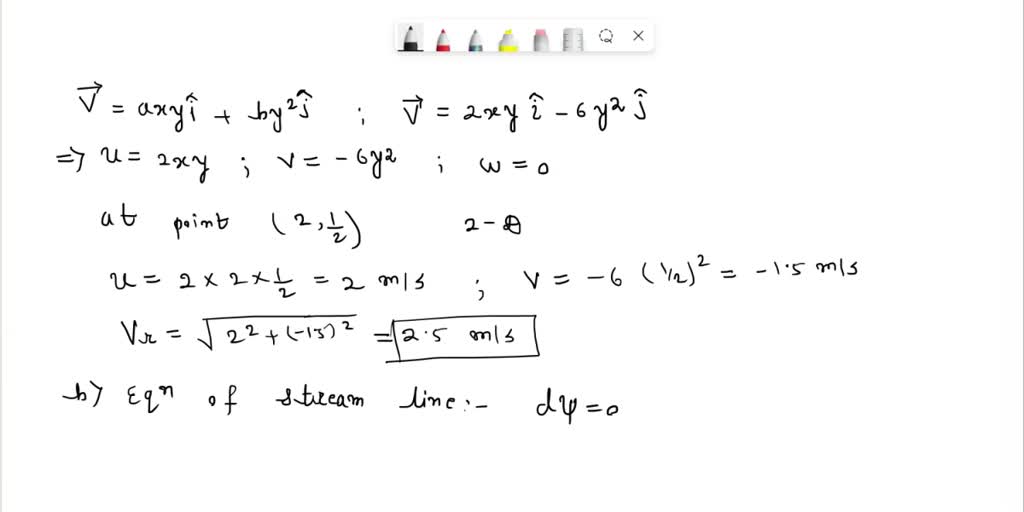 V⃗ = axyî + by²ĵ ; V⃗ = 2xy î - 6y² ĵ
=> u = 2xy ; v = -6y² ; w = 0
at point (2, 1/2) 2-D
u = 2 × 2 × 1/2 = 2 m/s ; v = -6 (1/2)² = -1.5 m/s
Vr = √(2² + (-1.5)²) = 2.5 m/s
b) Eqn of stream line:- dψ = 0